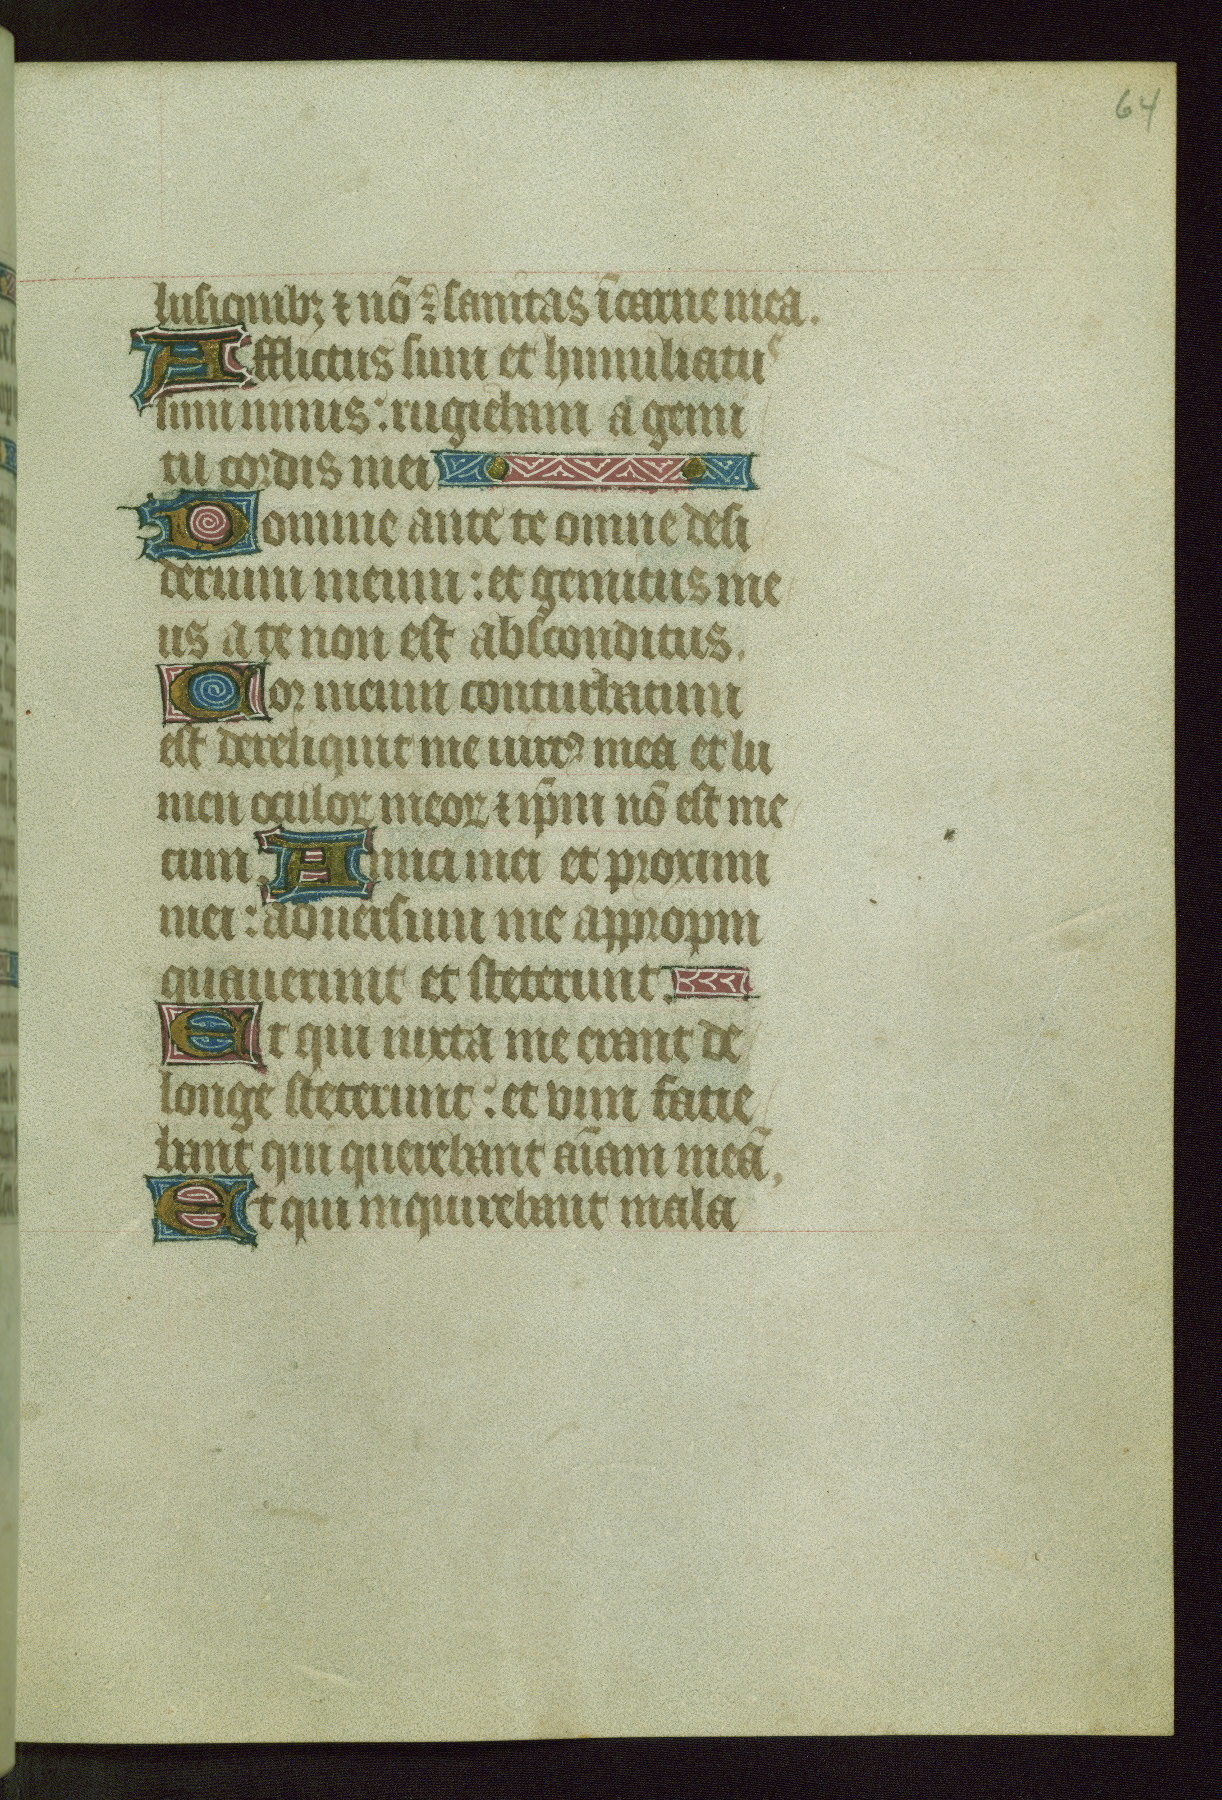 64
lusionibꝫ ⁊ nō ÷ sanitas īcarne mea.
Afflictus sum et humiliatuˢ
sum nimis: rugiebam a gemi
tu cordis mei
Domine ante te omne desi
derium meum: et gemitus me
us a te non est absconditus.
Cor meum conturbatum
est dereliquit me uirtꝰ mea et lu
men oculoꝝ meoꝝ ⁊ ip̄m nō est me
cum. Amici mei et proximi
mei: aduersum me appropin
quauerunt et steterunt.
Et qui iuxta me erant de
longe steterunt: et vim facie
bant qui querebant aīam meā,
Et qui inquirebant mala